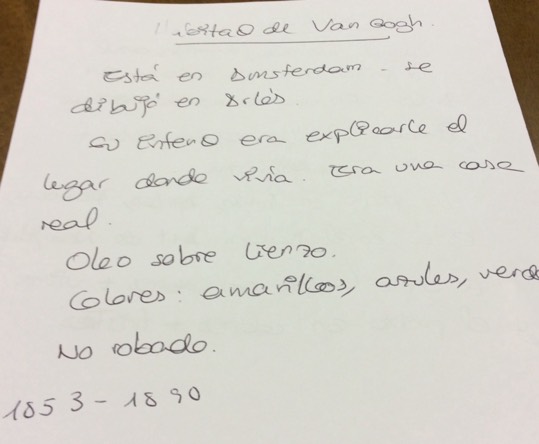 de Van Gogh.
Está en Amsterdam - se
dibujó en Arlés.
Su era explicarle el
lugar donde vivía. Era una casa
real.
Oleo sobre lienzo.
Colores: amarillos, azules, verde
No robado.
1853 - 1890